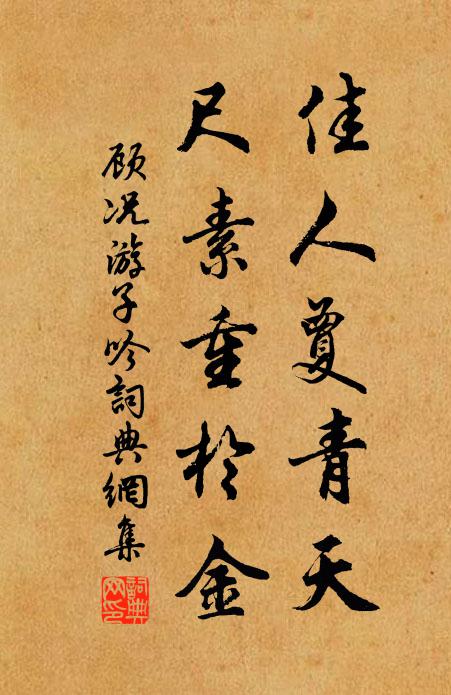 佳人夐青天
尺素重於金
顾况游子吟詞典網集
詞典
网印